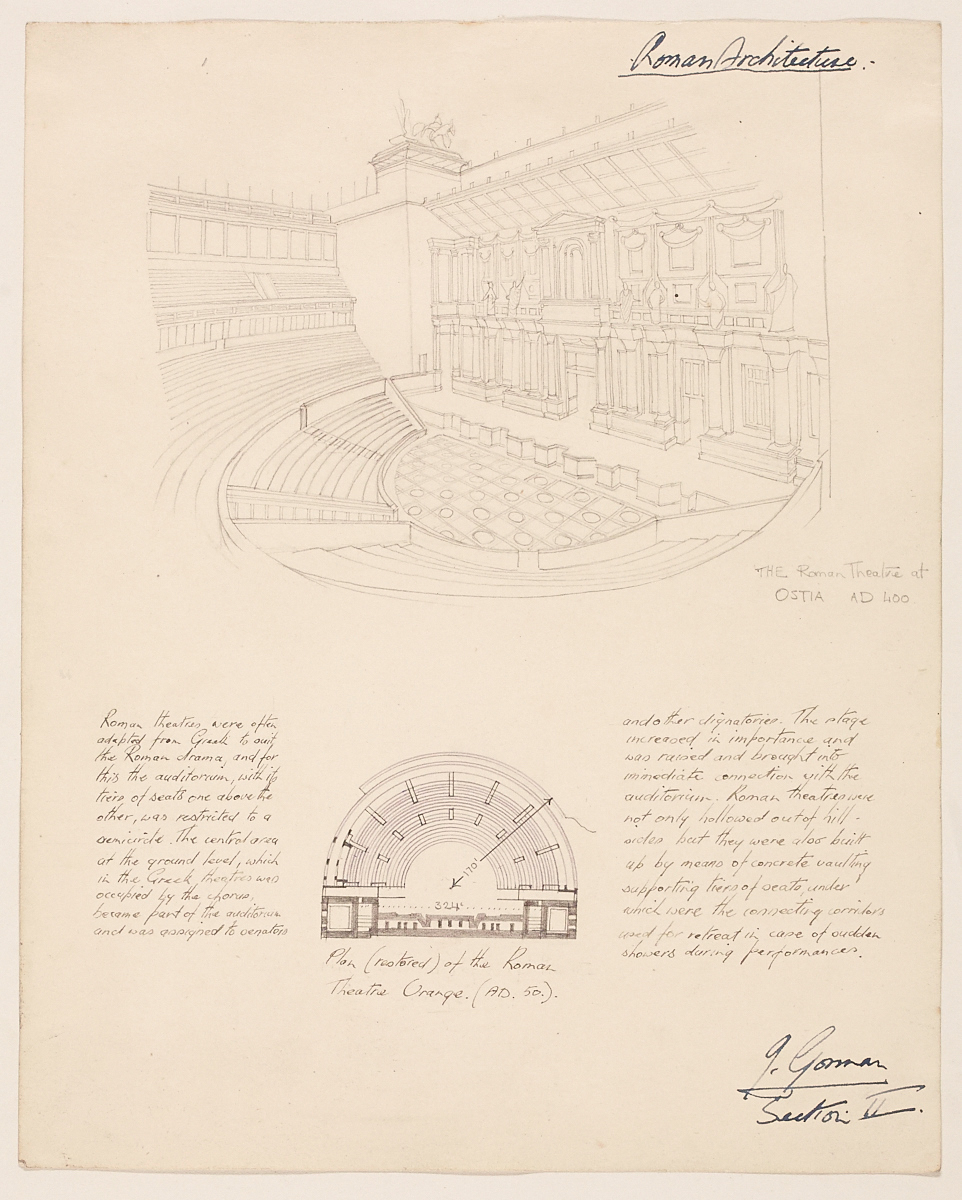 Roman Architecture.
THE Roman Theatre at
OSTIA AD 400
Roman theatres were often
adapted from Greek to suit
the Roman drama, and for
this the auditorium, with its
tiers of seats one above the
other, was restricted to a
semicircle. The central area
at the ground level, which
in the Greek theatres was
occupied by the chorus,
became part of the auditorium
and was assigned to senators
170'
324'
Plan (restored) of the Roman
Theatre Orange. (AD. 50.).
and other dignatories. The stage
increased in importance and
was raised and brought into
immediate connection with the
auditorium. Roman theatres were
not only hollowed out of hill-
sides but they were also built
up by means of concrete vaulting
supporting tiers of seats, under
which were the connecting corridors
used for retreat in case of sudden
showers during performances.
J. Gorman
Section II.